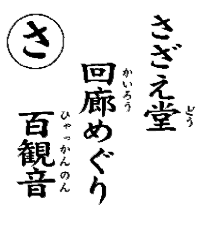 さ
さざえ堂
どう
回廊めぐり
かいろう
百観音
ひゃっかんのん